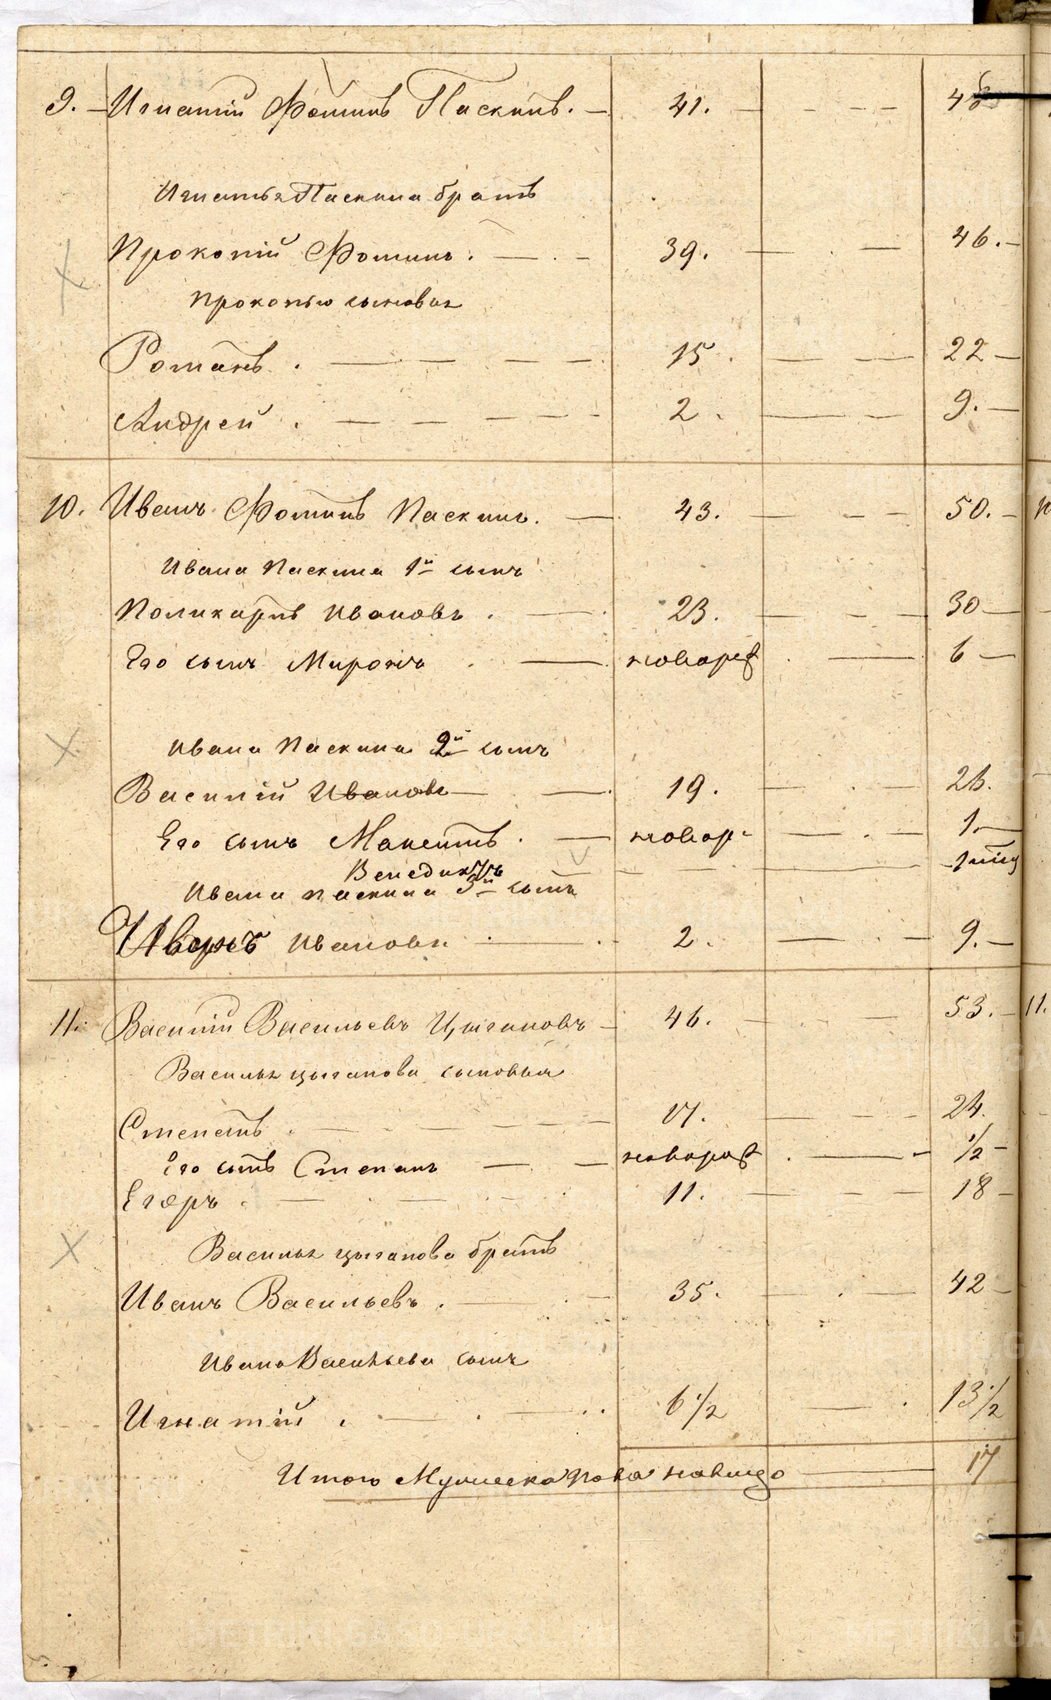 9. Игнатій Фоминъ Паскинъ. 41. 48
Игнатья Паскина братъ
Прокопій Фоминъ. 39. 46.
Прокопья сыновья
Романъ. 15. 22
Андрей. 2. 9.
10. Иванъ Фоминъ Паскинъ. 43. 50.
Ивана Паскина 1й сынъ
Поликарпъ Ивановъ. 23. 30
Его сынъ Миронъ новорож 6
Ивана Паскина 2й сынъ
Василій Ивановъ 19. 26.
Его сынъ Макситъ. новор. 1.
Венедиктъ
Ивана Паскина 3й сынъ
Иванъ Ивановъ 2. 9.
11. Василій Васильевъ Цыгановъ 46. 53.
Василья Цыганова сыновья
Степанъ 17. 24.
Его сынъ Степанъ новорож 1/2
Егоръ 11. 18
Василья Цыганова братъ
Иванъ Васильевъ. 35. 42
Ивана Васильева сынъ
Игнатій. 6 1/2 13 1/2
Итого Мужеска пола налицо 17
11.
METRIKI.GA